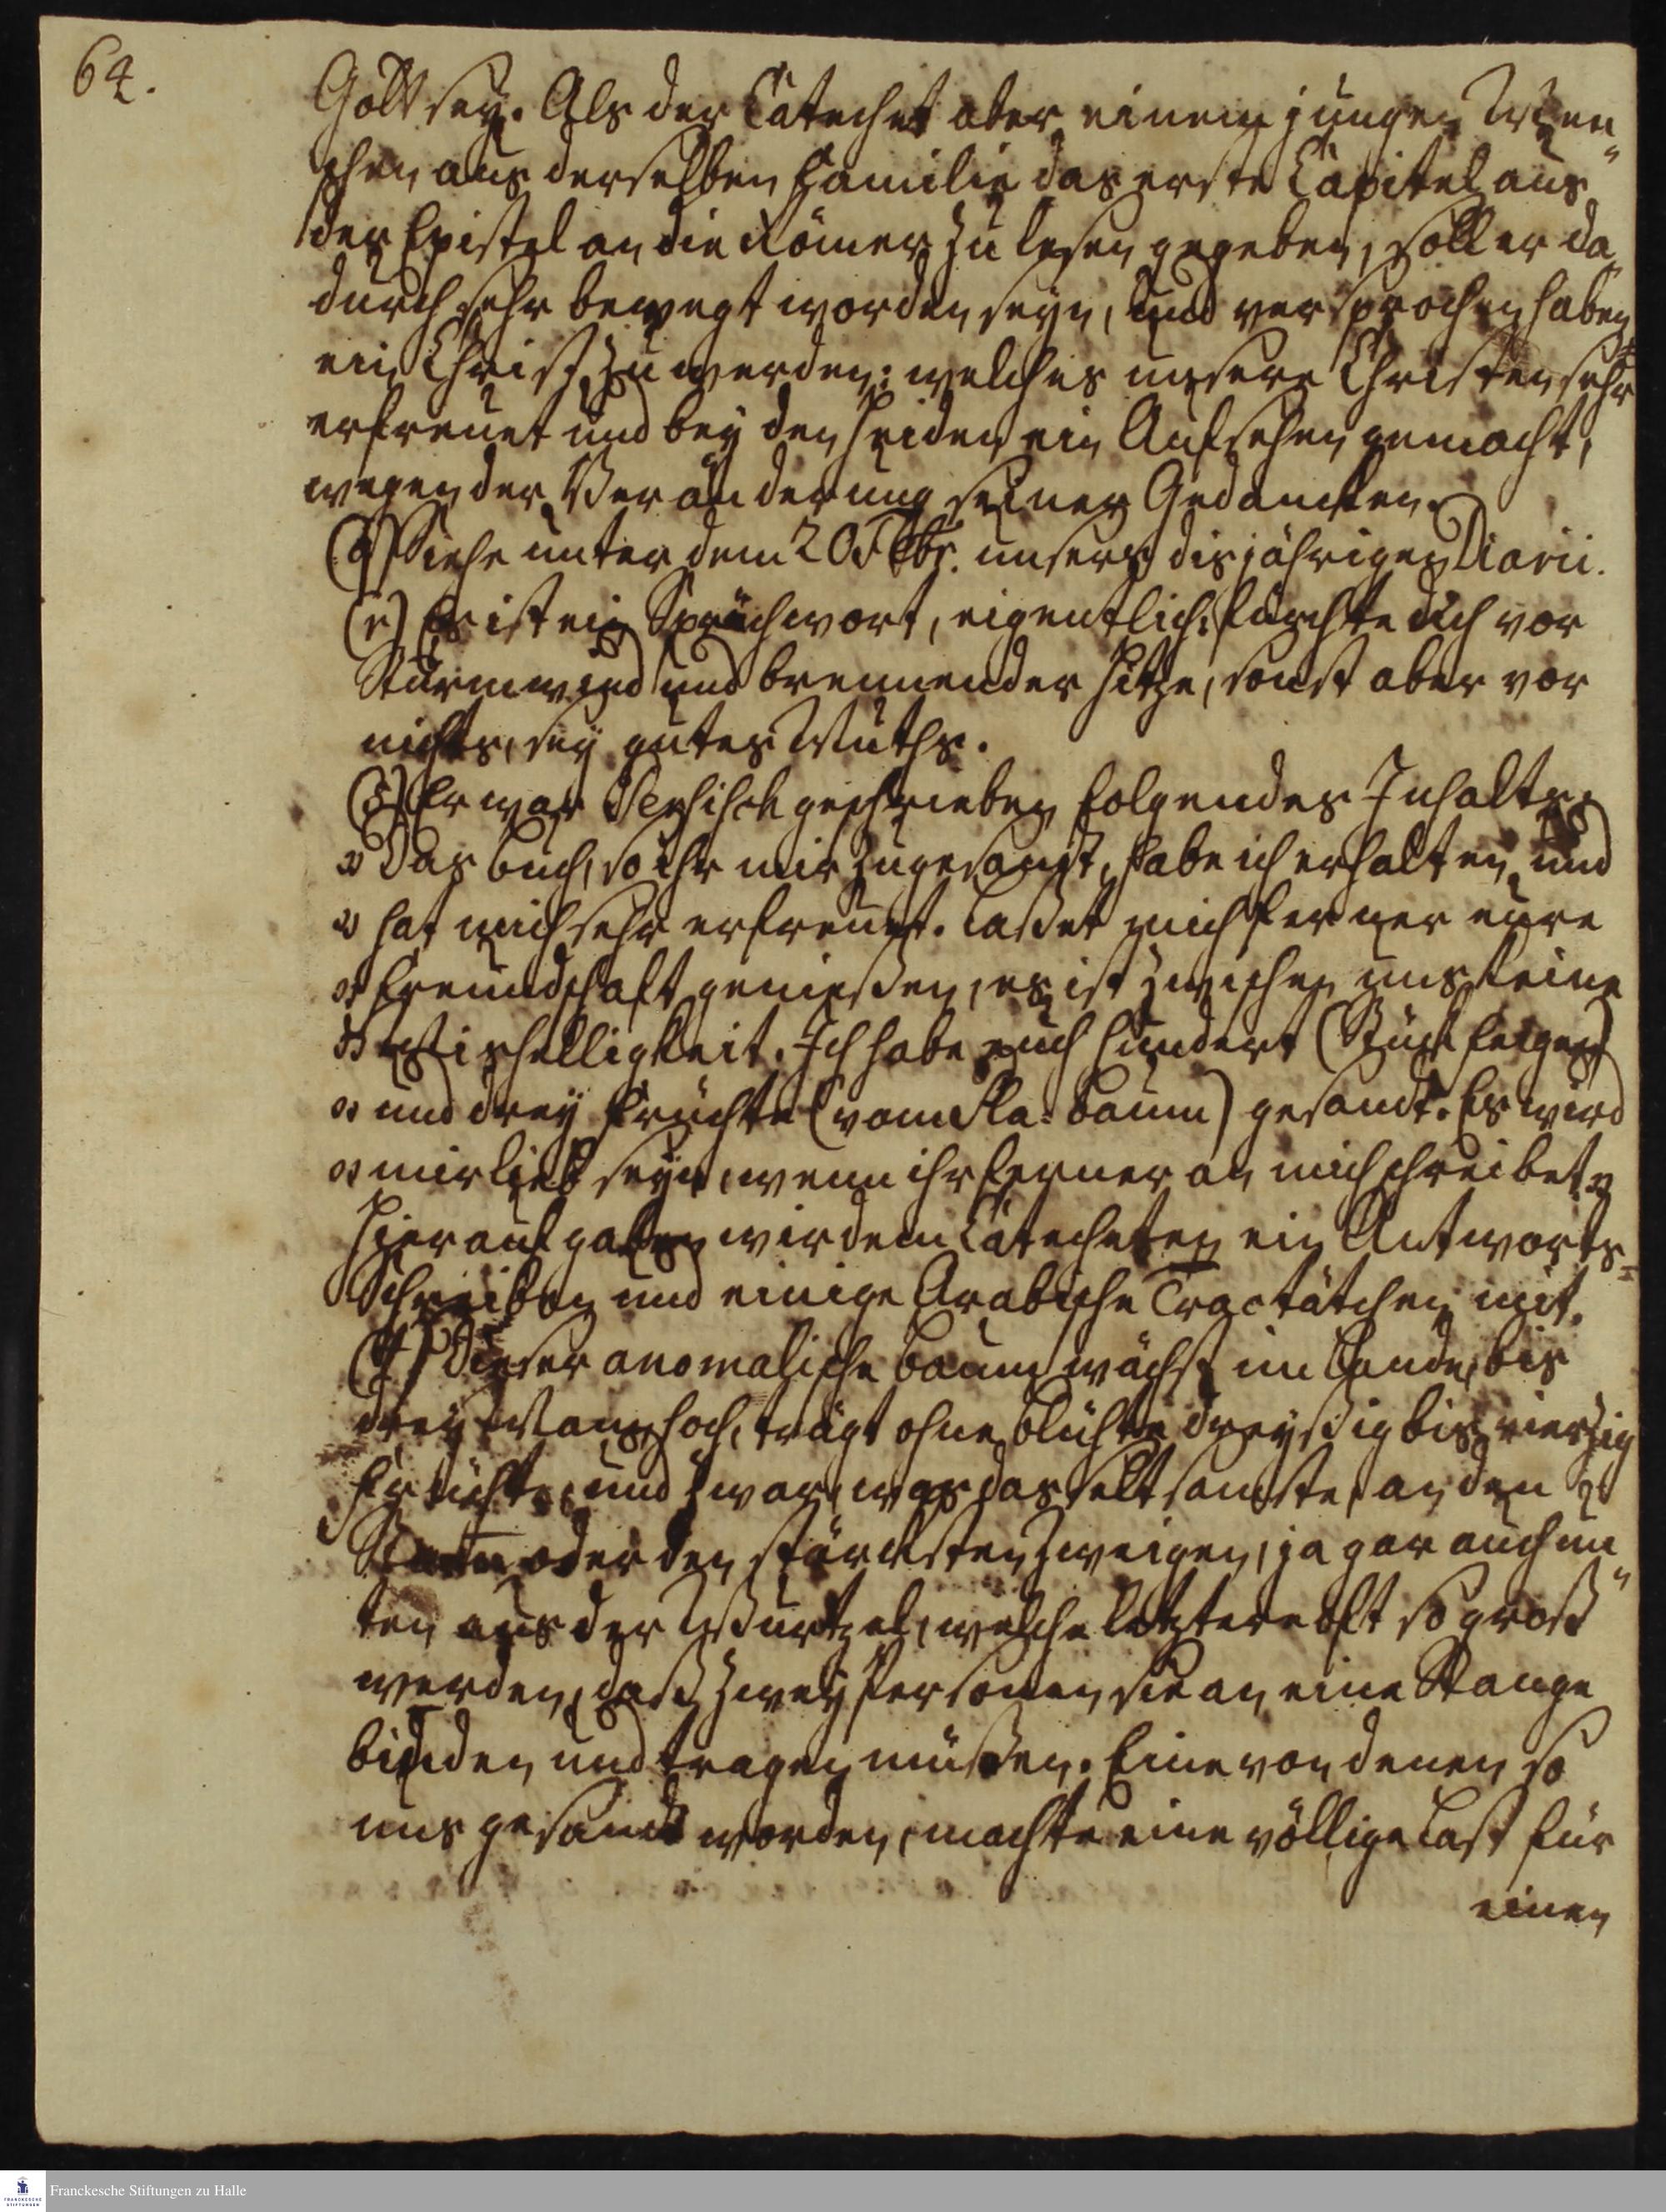 64.
Gott sey. Als der Catechet aber einem jungen Men„
schen aus derselben Familie das erste Capitel aus
der Epistel an die Römer zu lesen gegeben, soll er da„
durch sehr bewegt worden seyn, und versprochen haben
ein Christ zu werden: welches unsere Christen sehr
erfreuet und bey den Heiden ein Aufsehen gemacht,
wegen der Veränderung seiner Gedancken.
(q) Siehe unter dem 20 Febr. unsers disjährigen Diarii.
(r) Es ist ein Sprüchwort, eigentlich: fürchte dich vor
Sturmwind und brennender Hitze, sonst aber vor
nichts, sey gutes Muths.
(s) Er war Persisch geschrieben folgendes Inhalts:
„ Das Buch, so ihr mir zugesandt, habe ich erhalten, und
„ hat mich sehr erfreuet. Laßet mich ferner eure
„ Freundschaft genießen, es ist zwischen uns keine
„ Mishelligkeit. Ich habe euch hundert (Stück Feigen)
„ und drey Früchte (vom Pla: Baum) gesandt. Es wird
„ mir lieb seyn, wenn ihr ferner an mich schreibet. „
Hierauf gaben wir dem Catecheten ein Antworts=
Schreiben und einige Arabische Tractätchen mit.
(t) Dieser anomalische Baum wächst im Lande, bis
drey Mann hoch, trägt ohne Blüthe dreyßig bis vierzig
Früchte, und zwar, was das seltsamste, an den
oder den stärcksten Zweigen, ja gar auch un„
ten aus der Wurtzel, welche letztere oft so groß
werden, daß zwey Personen sie an eine Stange
binden und tragen müßen. Eine von denen, so
uns gesandt worden, machte eine völlige Last für
einen
Franckesche Stiftungen zu Halle
FRANCKESCHE
STIFTUNGEN